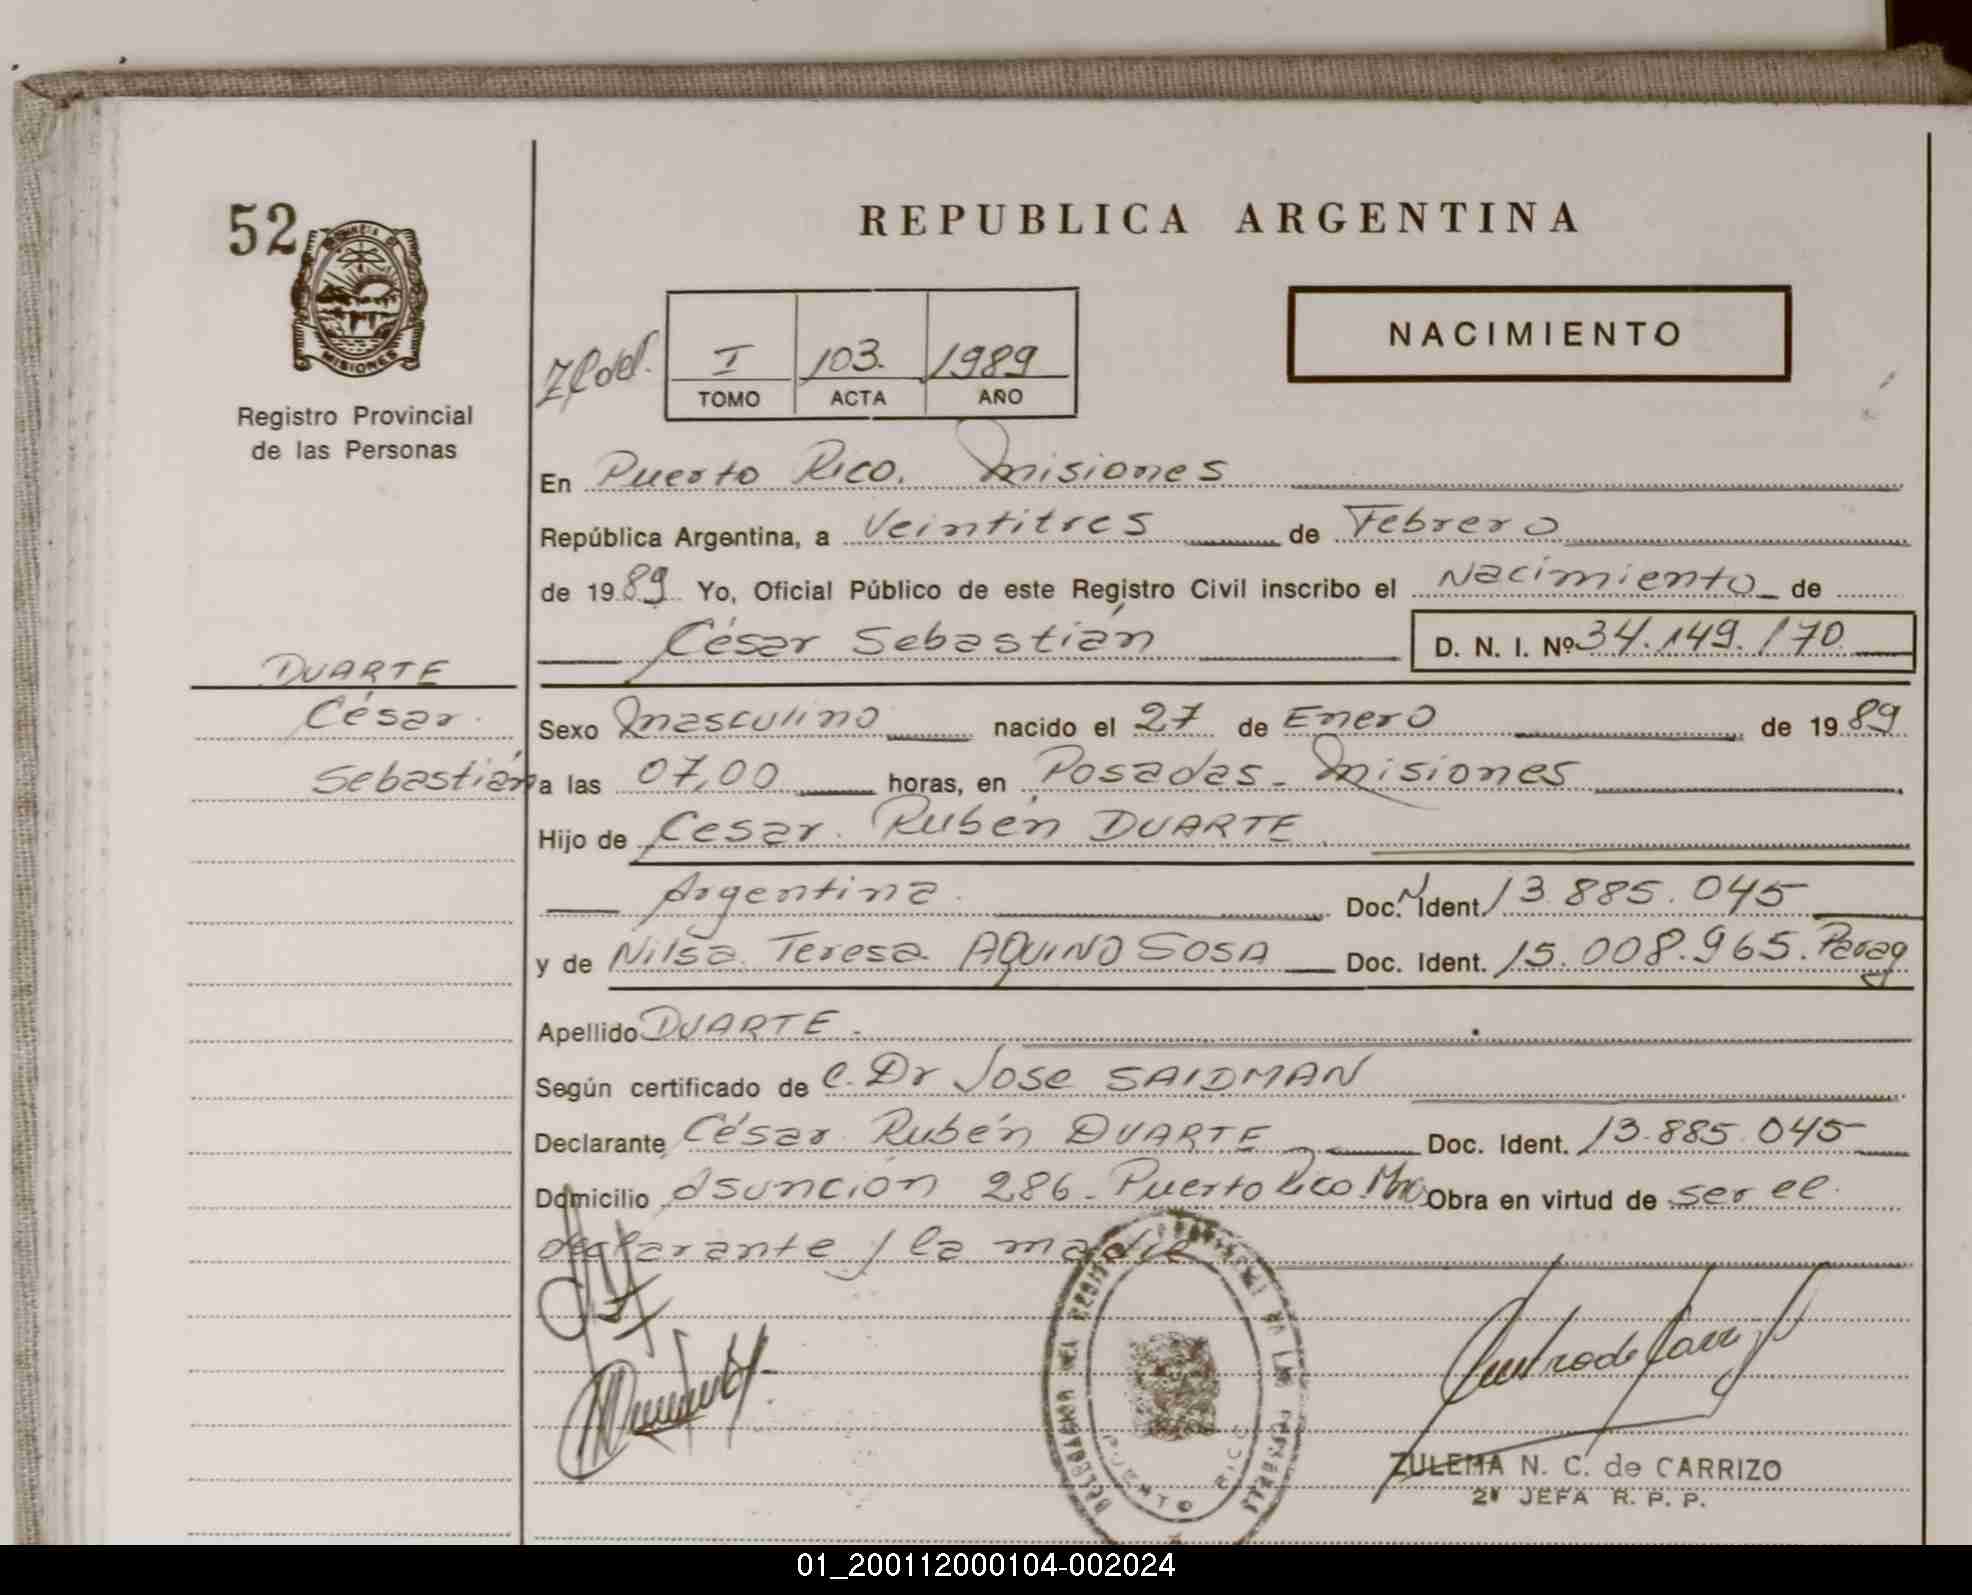 52
MISIONES
Registro Provincial
de las Personas
REPUBLICA ARGENTINA
NACIMIENTO
I 103. 1989
TOMO ACTA AÑO
En Puerto Rico. Misiones
República Argentina, a Veintitres de Febrero
de 1989 Yo, Oficial Público de este Registro Civil inscribo el Nacimiento de
César Sebastián D. N. I. Nº 34.149.170
DUARTE
César
Sebastián
Sexo Masculino nacido el 27 de Enero de 1989
a las 07,00 horas, en Posadas - Misiones
Hijo de Cesar Rubén DUARTE
Argentina Doc. Ident. 13.885.045
y de Nilsa Teresa AQUINO SOSA Doc. Ident. 15.008.965. Parag
Apellido DUARTE.
Según certificado de C. Dr Jose SAIDMAN
Declarante César Rubén DUARTE Doc. Ident. 13.885.045
Domicilio Asunción 286 - Puerto Rico. Mnes Obra en virtud de ser el
declarante y la madre
PUERTO RICO
ZULEMA N. C. de CARRIZO
2ª JEFA R. P. P.
01_200112000104-002024